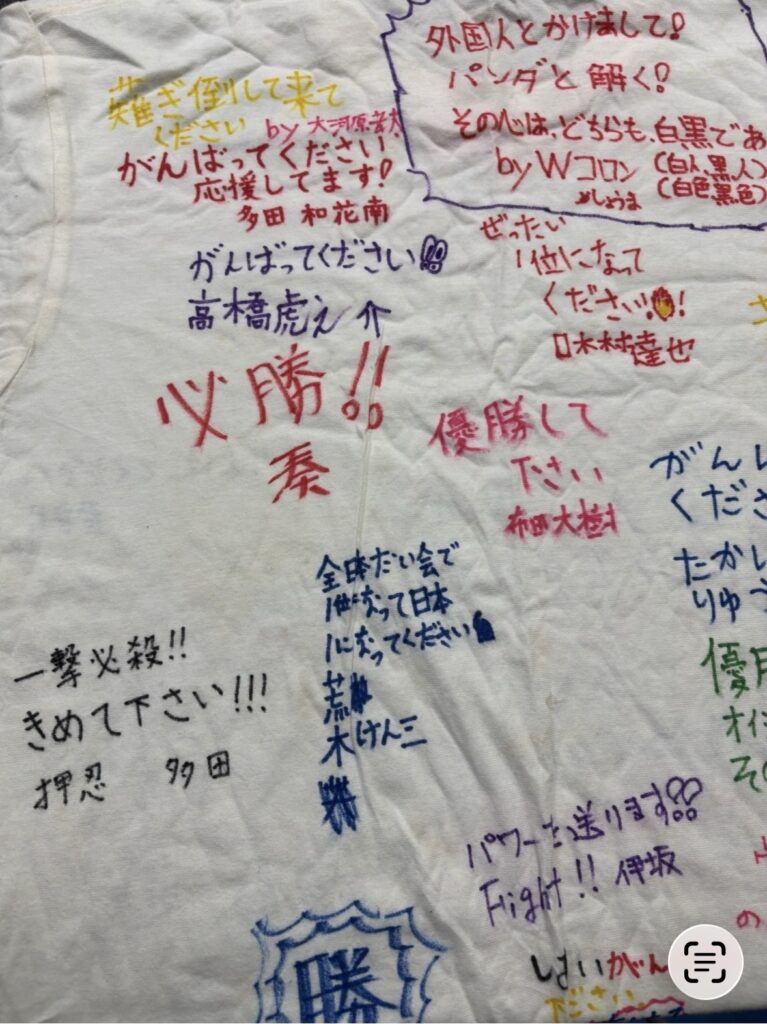 薙ぎ倒して来て
ください
by 大河原
がんばってください
応援してます!
多田 和花南
外国人とかけまして!
パンダと解く!
その心は、どちらも、白黒であ
by Wコロン (白人、黒人)
しょうま (白色、黒色)
がんばってください!!
高橋虎之介
ぜったい
1位になって
ください!!
木村達也
必勝!!
奏
優勝して
下さい
布田大樹
がんば
くださ
たかし
りゅう
全日本たい会で
1位になって日本
1になってください
荒
木けん三
一撃必殺!!
きめて下さい!!!
押忍 多田
優勝
オイ
その
パワーを送ります!!
Fright!! 伊坂
の
しあいがん
ださい
勝